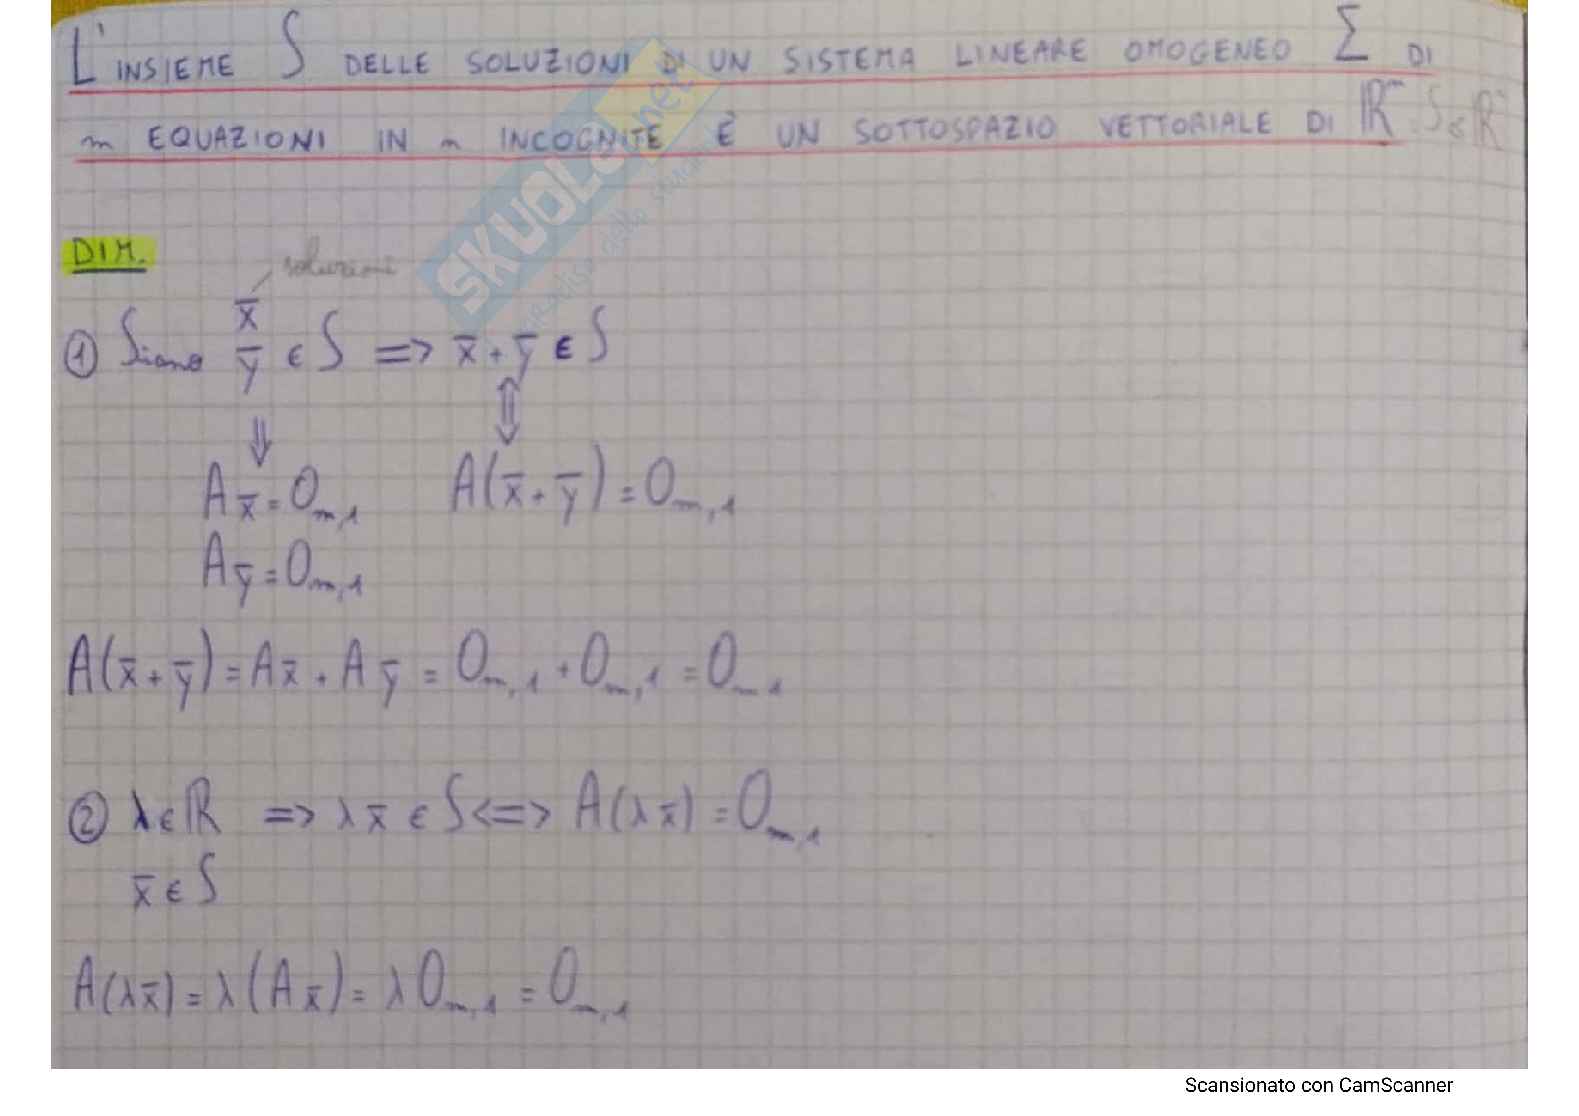 L'INSIEME S DELLE SOLUZIONI DI UN SISTEMA LINEARE OMOGENEO Σ DI
m EQUAZIONI IN n INCOGNITE È UN SOTTOSPAZIO VETTORIALE DI ℝⁿ S ≤ ℝⁿ
SKUOLA.net
DIM.
soluzioni
① Siano x̄ ȳ ∈ S => x̄ + ȳ ∈ S
⇓ ⇕
A x̄ = O_m,1 A(x̄ + ȳ) = O_m,1
A ȳ = O_m,1
A(x̄ + ȳ) = A x̄ + A ȳ = O_m,1 + O_m,1 = O_m 1
② λ ∈ ℝ => λ x̄ ∈ S <=> A(λ x̄) = O_m,1
x̄ ∈ S
A(λ x̄) = λ(A x̄) = λ O_m,1 = O_m,1
Scansionato con CamScanner